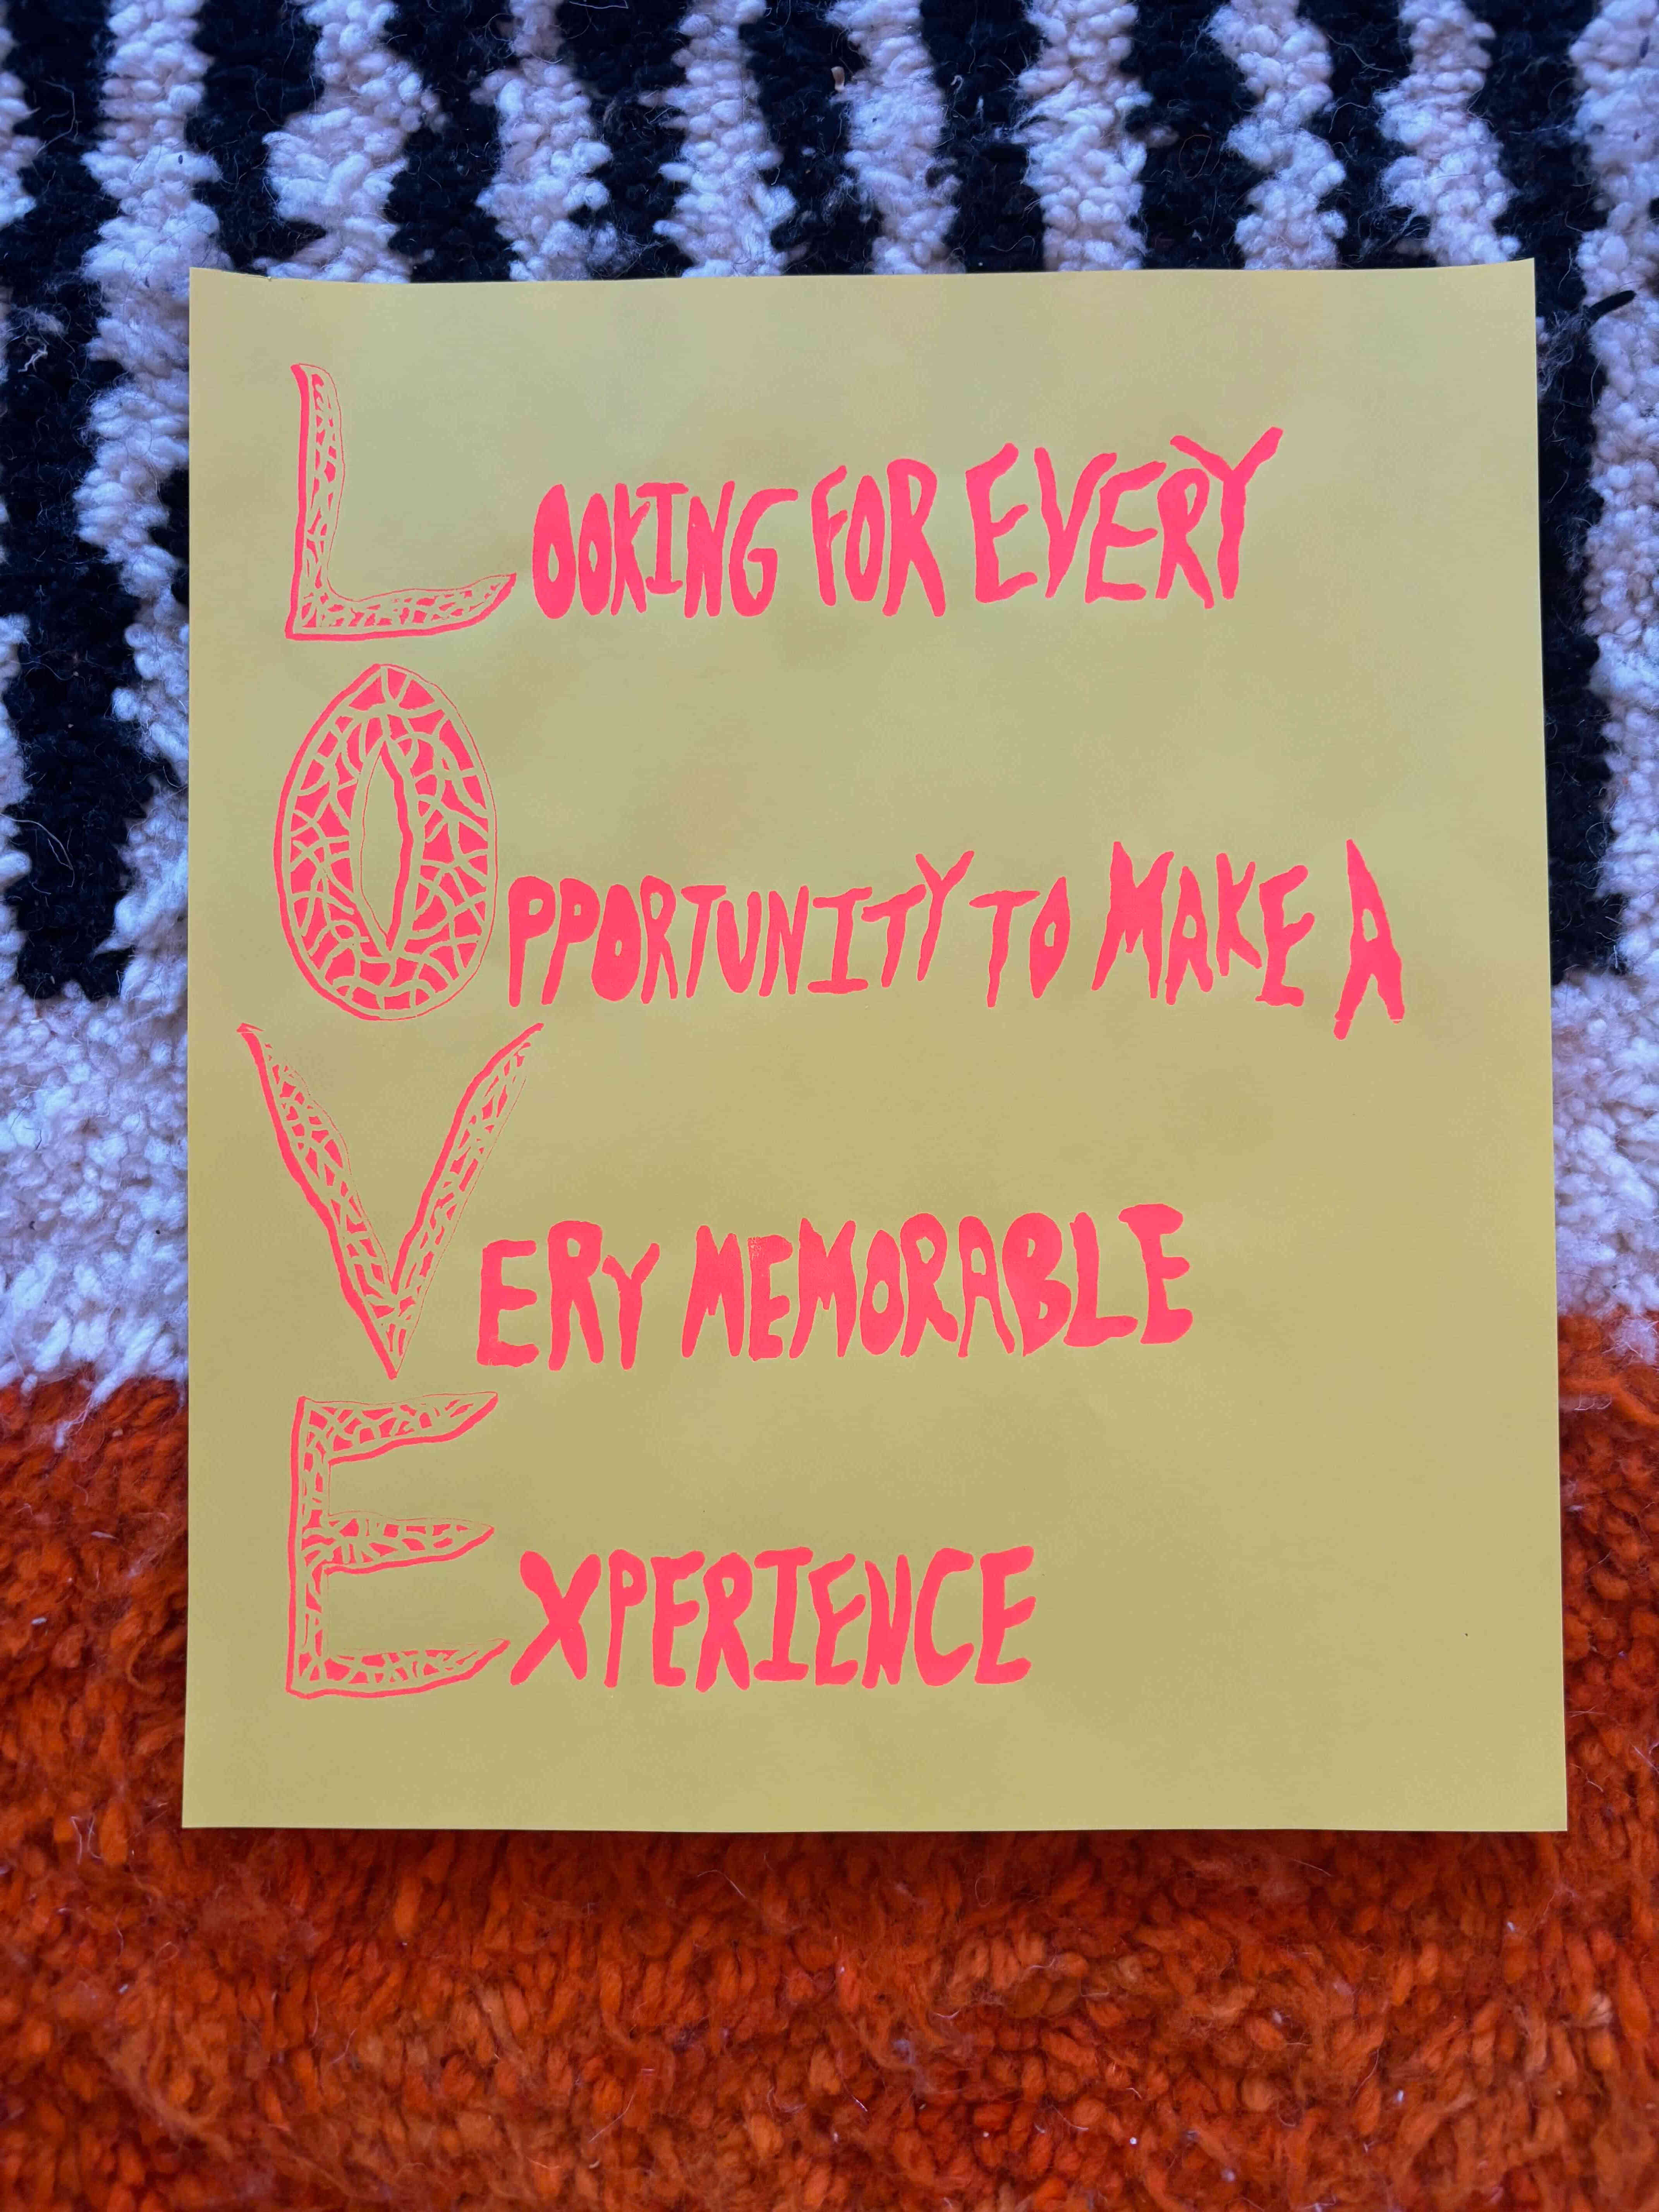 LOOKING FOR EVERY
OPPORTUNITY TO MAKE A
VERY MEMORABLE
EXPERIENCE